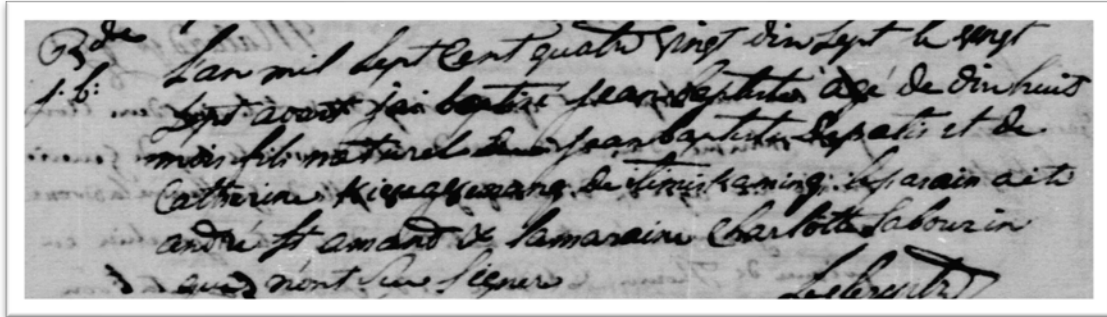 B de L'an mil sept cent quatre vingt din sept le vingt
j. b: sept aoust jai baptisé jean baptiste agé de din huit
mois fils naturel jean baptiste Depatis et de
Catherine de timiskaming. le parain a eté
andre St amand & la maraine Charlotte Sabourin
qui n'ont su signer